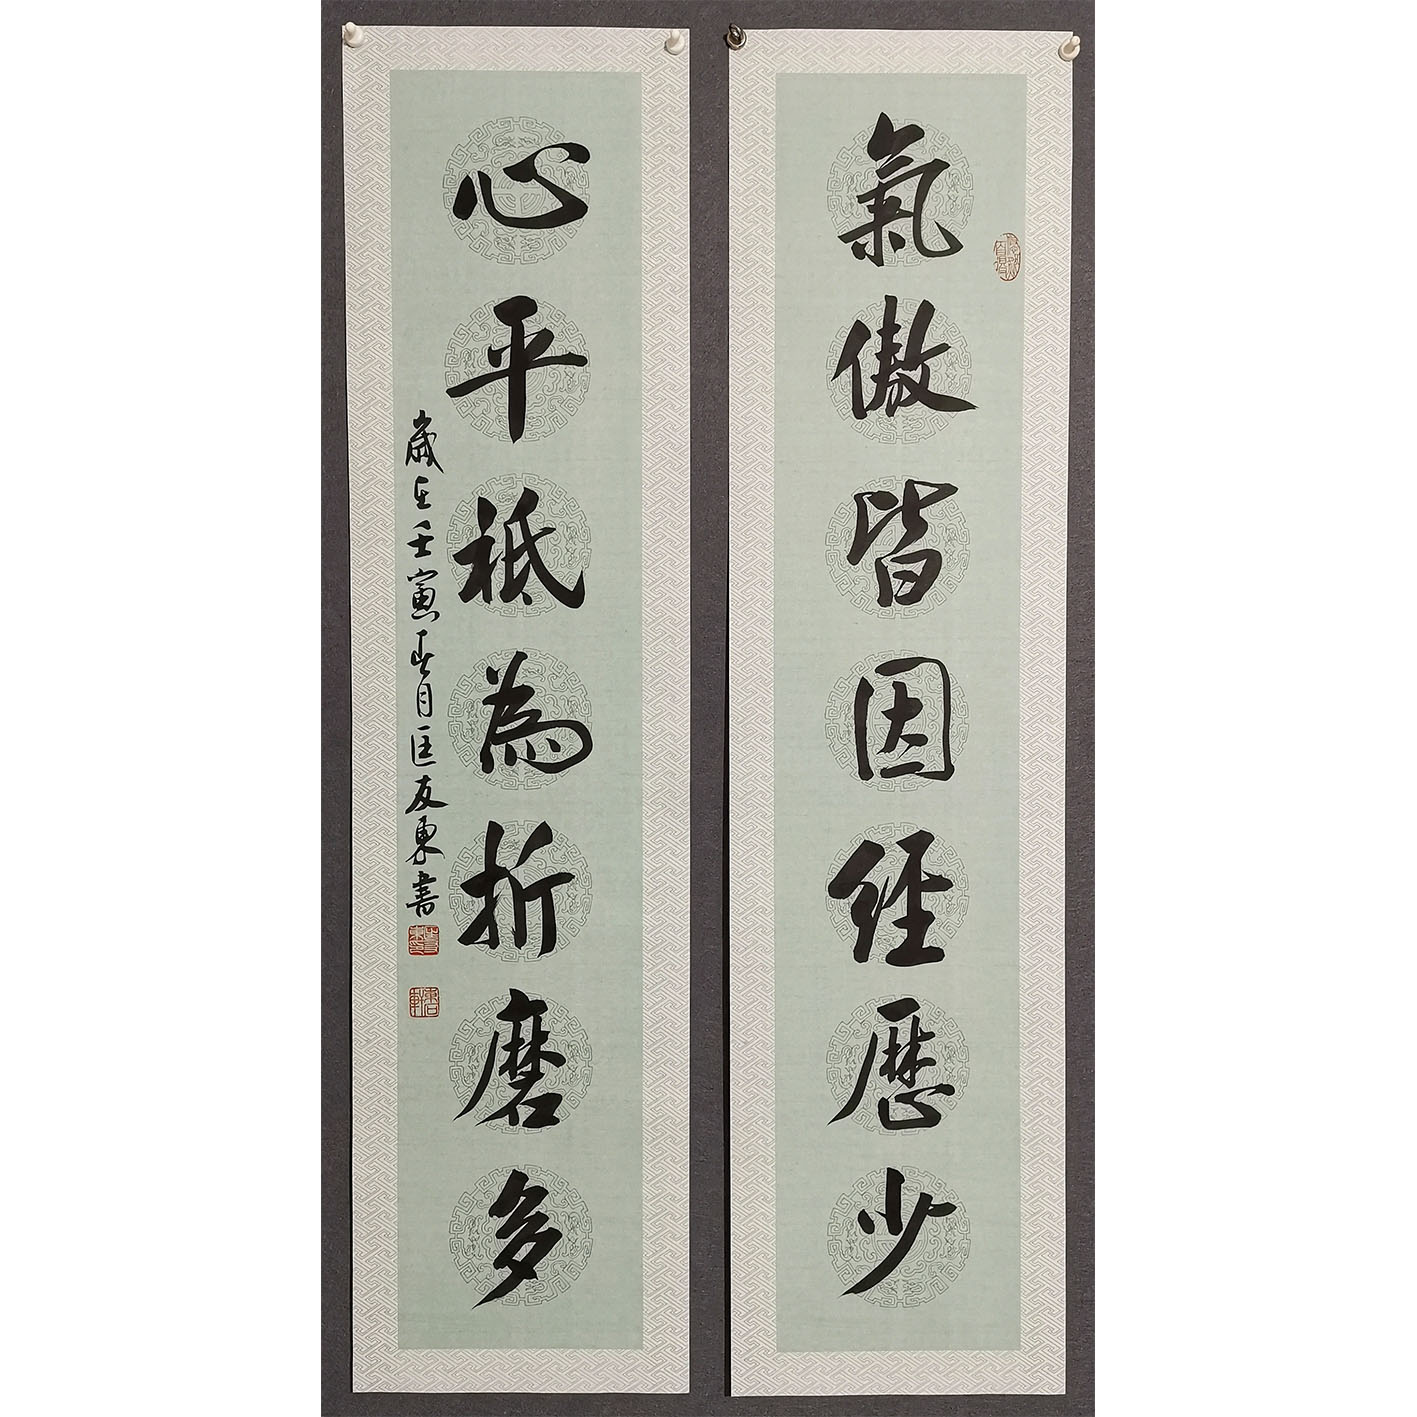 氣傲皆因經歷少
心平祗為折磨多
歲在壬寅春月匡友東書